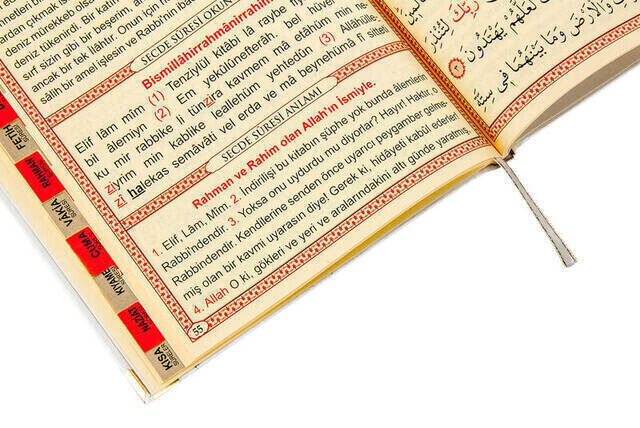 deniz tükenirdi. Bir katın
sırf sizin gibi bir beşerim, an
ancak bir tek ilâhtır. Onun için
sâlih bir amel işlesin ve Rabbi'nin ibad
SECDE SÛRESİ OKUN
Bismillâhirrahmânirrahîm
Elif lâm mîm (1) Tenzîylül kitâbi lâ raybe
bil âlemiyn (2) Em yekûlûnefterâh. bel hüvel
ku mir rabbike li tünzira kavmem mâ etâhüm min ne
ziyrim min kablike leallehüm yehtedûn (3) Allâhülle-
zî halekas semâvâti vel erda ve mâ beynehümâ fî sitteti
SECDE SÛRESİ ANLAMI
Rahman ve Rahim olan Allah'ın İsmiyle.
1. Elif, Lâm, Mîm. 2. İndirilişi bu kitabın şüphe yok bunda âlemlerin
Rabbi'ndendir. 3. Yoksa onu uydurdu mu diyorlar? Hayır! Haktır, o
Rabbindendir. Kendilerine senden önce uyarıcı peygamber gelme-
miş olan bir kavmi uyarasın diye! Gerek ki, hidâyeti kabûl ederler!
4. Allah O ki, gökleri ve yeri ve aralarındakini altı günde yaratmış,
55
FETİH
RAHMAN
VAKIA
CUMA
KIYAME
NAZİAT
KISA
SÛRELER
رَبِّكَ لِتُنْذِرَ
لَعَلَّهُمْ يَهْتَدُونَ
وَالْاَرْضَ وَمَا بَيْنَهُمَا فِي سِتَّةِ